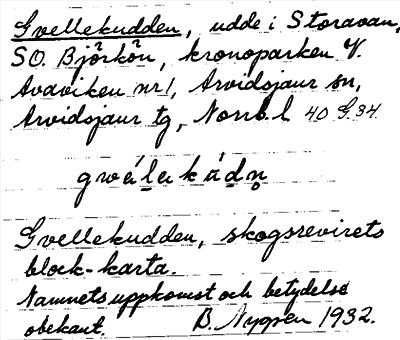 Gvellekudden, udde i Storavan,
SO. Björkön, kronoparken V.
Avaviken nr 1, Arvidsjaur sn,
Arvidsjaur tg, Norrb. l 40 G 34
Gvellekudden, skogsrevirets
block-karta.
Namnets uppkomst och betydelse
obekant. B. Nygren 1932.